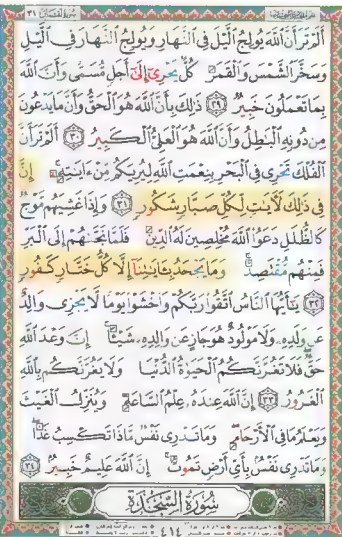 سورة لقمان ٣١
أَلَمْ تَرَ أَنَّ ٱللَّهَ يُولِجُ ٱلَّيْلَ فِى ٱلنَّهَارِ وَيُولِجُ ٱلنَّهَارَ فِى ٱلَّيْلِ
وَسَخَّرَ ٱلشَّمْسَ وَٱلْقَمَرَ كُلٌّ يَجْرِىٓ إِلَىٰٓ أَجَلٍ مُّسَمًّى وَأَنَّ ٱللَّهَ
بِمَا تَعْمَلُونَ خَبِيرٌ ٢٩ ذَٰلِكَ بِأَنَّ ٱللَّهَ هُوَ ٱلْحَقُّ وَأَنَّ مَا يَدْعُونَ
مِن دُونِهِ ٱلْبَٰطِلُ وَأَنَّ ٱللَّهَ هُوَ ٱلْعَلِىُّ ٱلْكَبِيرُ ٣٠ أَلَمْ تَرَ أَنَّ
ٱلْفُلْكَ تَجْرِى فِى ٱلْبَحْرِ بِنِعْمَتِ ٱللَّهِ لِيُرِيَكُم مِّنْ ءَايَٰتِهِۦٓ ۚ إِنَّ
فِى ذَٰلِكَ لَءَايَٰتٍ لِّكُلِّ صَبَّارٍ شَكُورٍ ٣١ وَإِذَا غَشِيَهُم مَّوْجٌ
كَٱلظُّلَلِ دَعَوُا۟ ٱللَّهَ مُخْلِصِينَ لَهُ ٱلدِّينَ فَلَمَّا نَجَّىٰهُمْ إِلَى ٱلْبَرِّ
فَمِنْهُم مُّقْتَصِدٌ ۚ وَمَا يَجْحَدُ بِـَٔايَٰتِنَآ إِلَّا كُلُّ خَتَّارٍ كَفُورٍ
٣٢ يَٰٓأَيُّهَا ٱلنَّاسُ ٱتَّقُوا۟ رَبَّكُمْ وَٱخْشَوْا۟ يَوْمًا لَّا يَجْزِى وَالِدٌ
عَن وَلَدِهِۦ وَلَا مَوْلُودٌ هُوَ جَازٍ عَن وَالِدِهِۦ شَيْـًٔا ۚ إِنَّ وَعْدَ ٱللَّهِ
حَقٌّ فَلَا تَغُرَّنَّكُمُ ٱلْحَيَوٰةُ ٱلدُّنْيَا وَلَا يَغُرَّنَّكُم بِٱللَّهِ
ٱلْغَرُورُ ٣٣ إِنَّ ٱللَّهَ عِندَهُۥ عِلْمُ ٱلسَّاعَةِ وَيُنَزِّلُ ٱلْغَيْثَ
وَيَعْلَمُ مَا فِى ٱلْأَرْحَامِ ۖ وَمَا تَدْرِى نَفْسٌ مَّاذَا تَكْسِبُ غَدًا ۖ
وَمَا تَدْرِى نَفْسٌۢ بِأَىِّ أَرْضٍ تَمُوتُ ۚ إِنَّ ٱللَّهَ عَلِيمٌ خَبِيرٌۢ ٣٤
سُورَةُ السَّجْدَةِ
٤١٤